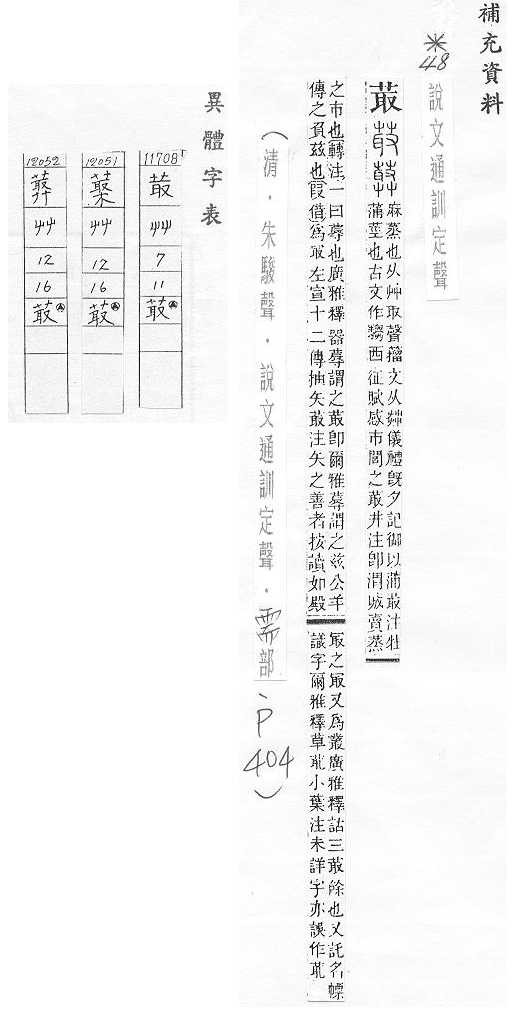 補充資料
*48
說文通訓定聲
菆
麻蒸也从艸取聲籀文从茻儀禮旣夕記御以蒲菆注牡
蒲莖也古文作騶西征賦感市閭之菆井注卽渭城賣蒸
之市也轉注一曰蓐也廣雅釋器蓐謂之菆卽爾雅蓐謂之茲公羊
傳之負茲也叚借爲冣左宣十二傳抽矢菆注矢之善者按讀如
冣之冣又爲叢廣雅釋詁三菆餘也又託名幖
識字爾雅釋草小葉注未詳字亦誤作
(清．朱駿聲．說文通訓定聲．需部、P404)
異體字表
11708 菆 艸 7 11 菆
12051 艸 12 16 菆
12052 艸 12 16 菆